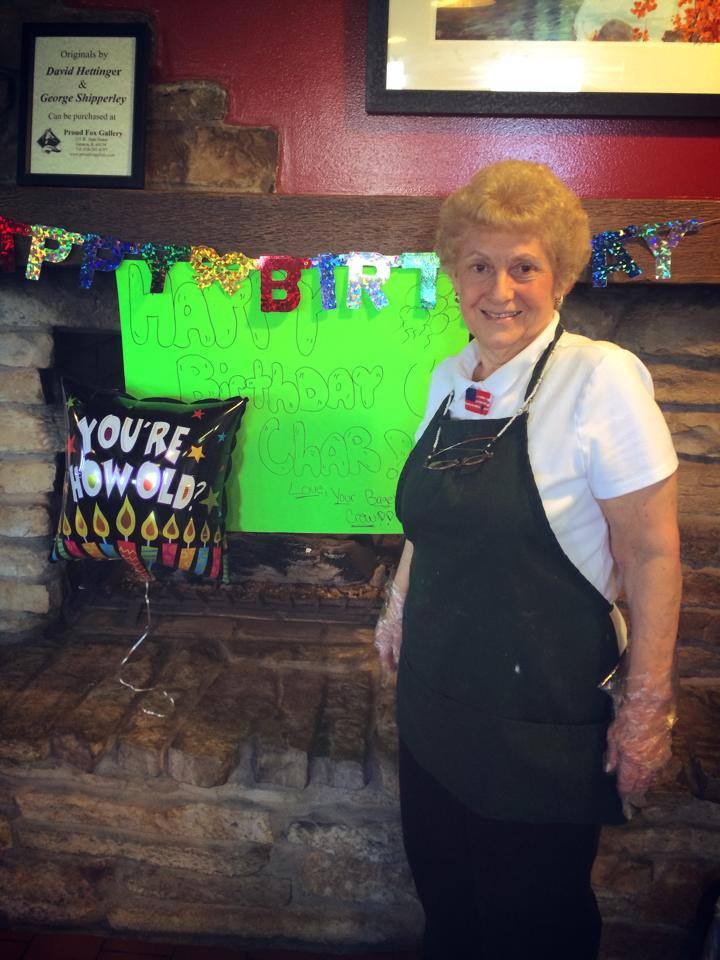 Originals by
David Hettinger
&
George Shipperley
Can be purchased at
Proud Fox Gallery
PPY BIRT AY
HAPPY
BirthDAY
CHAR!
Love, Your
Crew!
YOU'RE
HOW-OLD?